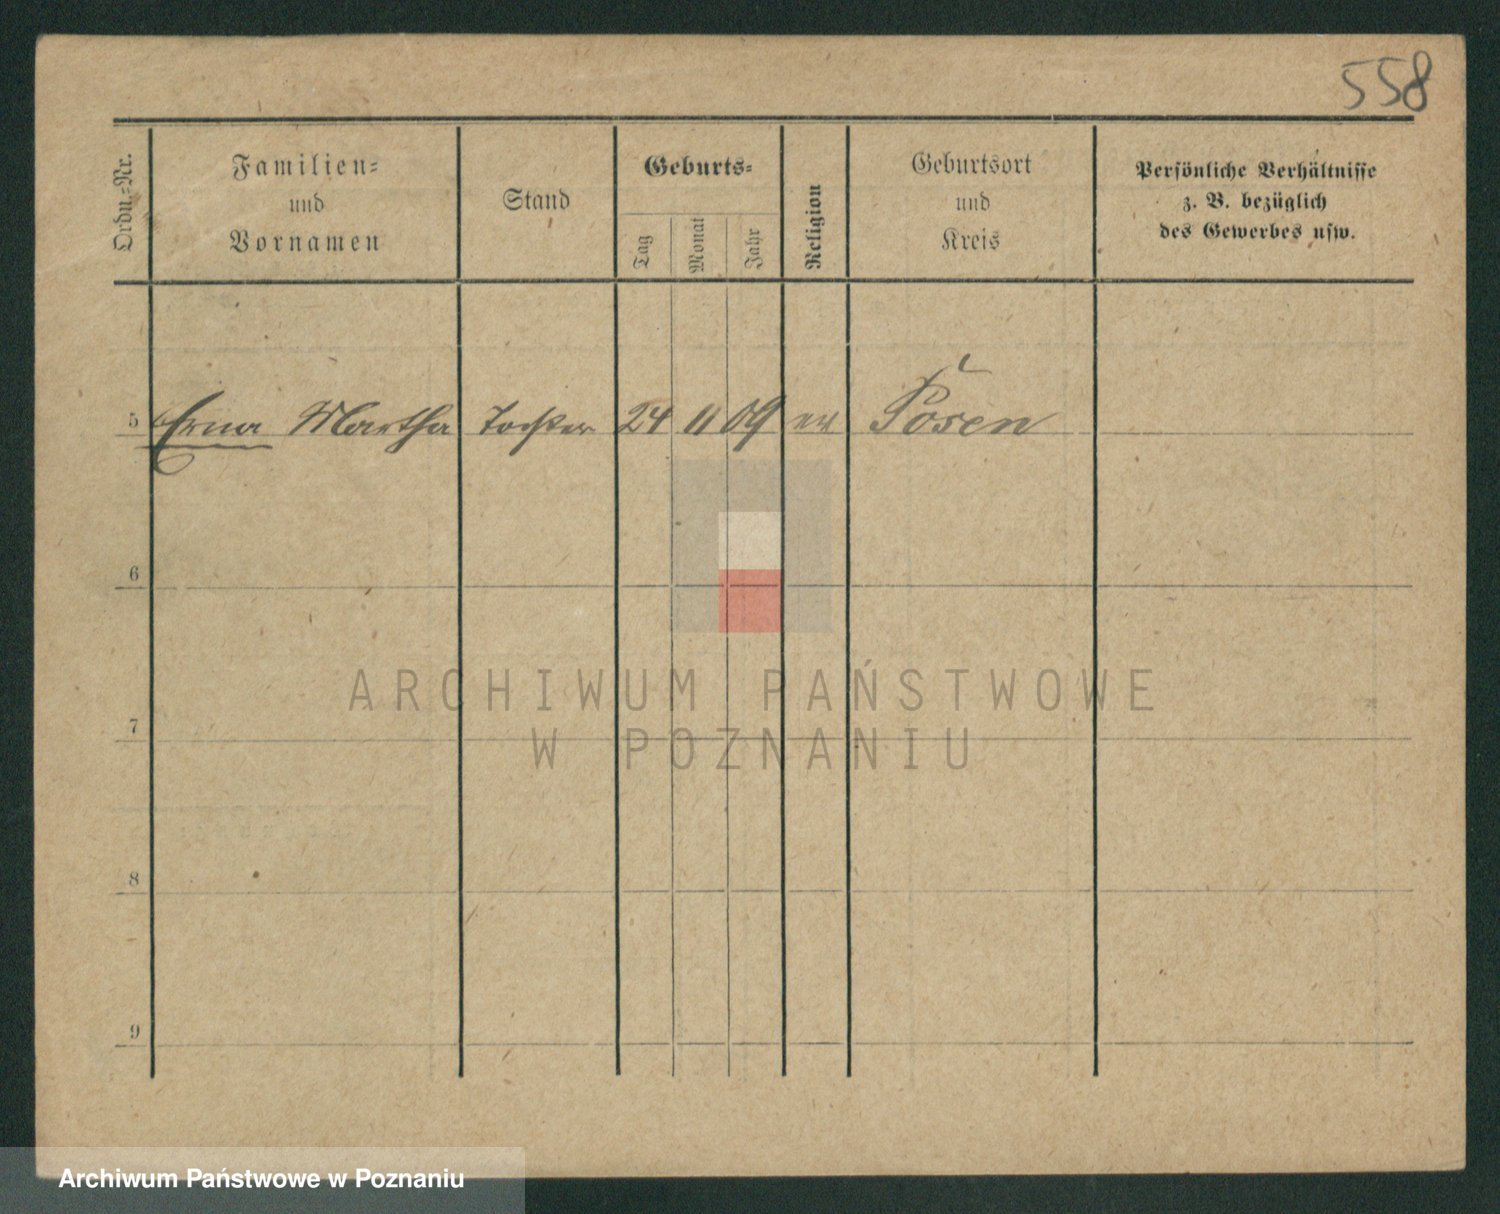 558
Ordn.-Nr.
Familien-
und
Vornamen
Stand
Geburts-
Tag
Monat
Jahr
Religion
Geburtsort
und
Kreis
Persönliche Verhältnisse
z. B. bezüglich
des Gewerbes usw.
5 Erna Martha Tochter 24 11 09 ev Posen
6
7
8
9
ARCHIWUM PAŃSTWOWE
W POZNANIU
Archiwum Państwowe w Poznaniu